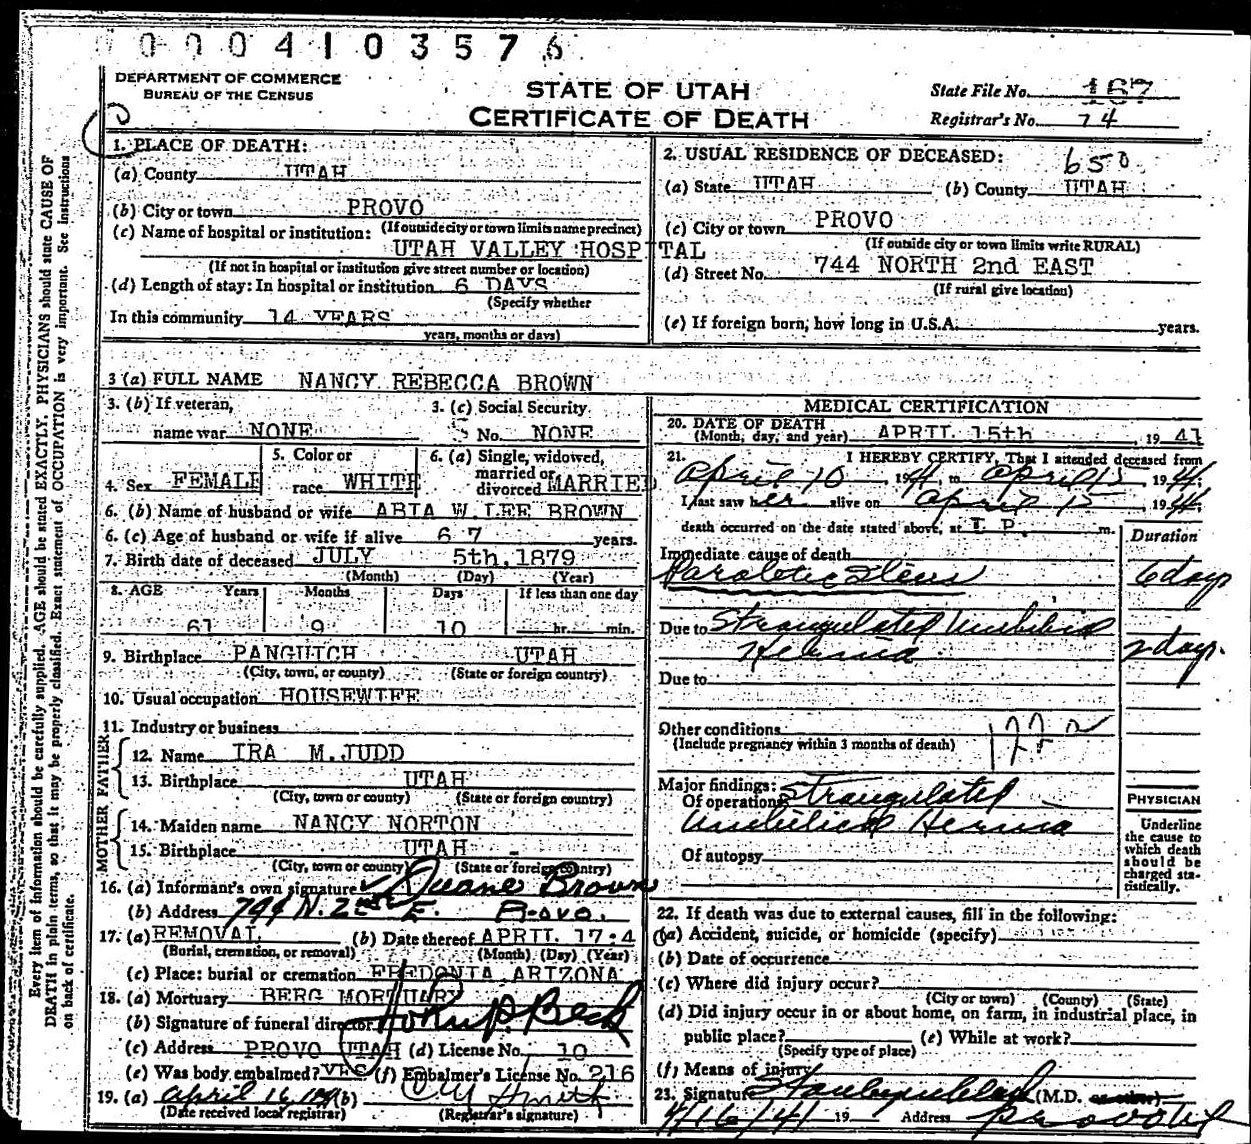 0 0 0 4 1 0 3 5 7 6
DEPARTMENT OF COMMERCE
BUREAU OF THE CENSUS
STATE OF UTAH
CERTIFICATE OF DEATH
State File No. 167
Registrar's No. 74
Every item of information should be carefully supplied. AGE should be stated EXACTLY. PHYSICIANS should state CAUSE OF
DEATH in plain terms, so that it may be properly classified. Exact statement of OCCUPATION is very important. See instructions
on back of certificate.
1. PLACE OF DEATH:
(a) County UTAH
(b) City or town PROVO
(If outside city or town limits name precinct)
(c) Name of hospital or institution:
UTAH VALLEY HOSPITAL
(If not in hospital or institution give street number or location)
(d) Length of stay: In hospital or institution 6 DAYS
(Specify whether
In this community 14 YEARS
years, months or days)
2. USUAL RESIDENCE OF DECEASED: 650
(a) State UTAH (b) County UTAH
(c) City or town PROVO
(If outside city or town limits write RURAL)
(d) Street No. 744 NORTH 2nd EAST
(If rural give location)
(e) If foreign born, how long in U.S.A. years.
3 (a) FULL NAME NANCY REBECCA BROWN
3. (b) If veteran,
name war NONE
3. (c) Social Security
No. NONE
4. Sex FEMALE
5. Color or
race WHITE
6. (a) Single, widowed,
married or
divorced MARRIED
6. (b) Name of husband or wife ABIA W. LEE BROWN
6. (c) Age of husband or wife if alive 67 years.
7. Birth date of deceased JULY 5th, 1879
(Month) (Day) (Year)
8. AGE Years Months Days If less than one day
61 9 10 hr. min.
9. Birthplace PANGUITCH UTAH
(City, town, or county) (State or foreign country)
10. Usual occupation HOUSEWIFE
11. Industry or business
FATHER
12. Name IRA M. JUDD
13. Birthplace UTAH
(City, town or county) (State or foreign country)
MOTHER
14. Maiden name NANCY NORTON
15. Birthplace UTAH
(City, town or county) (State or foreign country)
16. (a) Informant's own signature Duane Brown
(b) Address 744 N. 2nd E. Provo.
17. (a) REMOVAL (b) Date thereof APRIL 17-4
(Burial, cremation, or removal) (Month) (Day) (Year)
(c) Place: burial or cremation FREDONIA ARIZONA
18. (a) Mortuary BERG MORTUARY
(b) Signature of funeral director John P. Beck
(c) Address PROVO UTAH (d) License No. 10
(e) Was body embalmed? YES (f) Embalmer's License No. 216
19. (a) April 16, 1941 (b) Smith
(Date received local registrar) (Registrar's signature)
MEDICAL CERTIFICATION
20. DATE OF DEATH
(Month, day, and year) APRIL 15th, 1941
21. I HEREBY CERTIFY, That I attended deceased from
April 10, 1941, to April 15, 1941.
I last saw her alive on April 15 1941.
death occurred on the date stated above, at P. m.
Duration
Immediate cause of death
Paralytic Ileus 6 days
Due to Strangulated Umbilical
Hernia 2 days.
Due to
Other conditions
(Include pregnancy within 3 months of death)
Major findings:
Of operations Strangulated
Umbilical Hernia
Of autopsy
PHYSICIAN
Underline
the cause to
which death
should be
charged sta-
tistically.
22. If death was due to external causes, fill in the following:
(a) Accident, suicide, or homicide (specify)
(b) Date of occurrence
(c) Where did injury occur?
(City or town) (County) (State)
(d) Did injury occur in or about home, on farm, in industrial place, in
public place? (e) While at work?
(Specify type of place)
(f) Means of injury
23. Signature (M.D.
4/16/41 19 Address Provo Ut